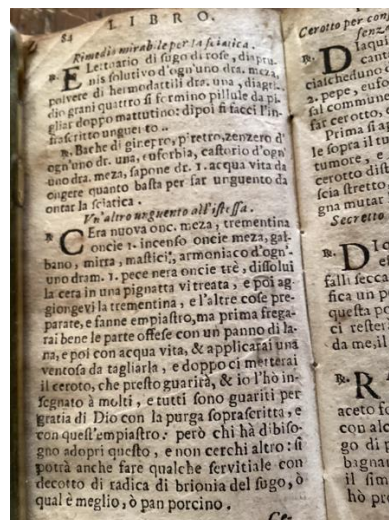 84 LIBRO.
Rimedio mirabile per la sciatica.
℞. ELettuario di sugo di rose, diapru-
nis solutivo d'ogn'uno dra. meza,
polvere di hermodattili dra. una, diagri-
dio grani quattro si formino pillule da pi-
gliar doppo mattutino: dipoi si facci l'in-
frascritto unguento.
℞. Bache di ginepro, piretro, zenzero d'
ogn'uno dr. una, euforbia, castorio d'ogn'
uno dra. meza, sapone dr. 1. acqua vita da
ongere quanto basta per far unguento da
ontar la sciatica.
Vn'altro unguento all'istessa.
℞ CEra nuova onc. meza, trementina
oncie 1. incenso oncie meza, gal-
bano, mirra, mastici, armoniaco d'ogn'-
uno dram. 1. pece nera oncie trè, dissolui
la cera in una pignatta vitreata, e poi ag-
giongevi la trementina, e l'altre cose pre-
parate, e fanne empiastro, ma prima frega-
rai bene le parte offese con un panno di la-
na, e poi con acqua vita, & applicarai una
ventosa da tagliarla, e doppo ci metterai
il ceroto, che presto guarirà, & io l'hò in-
segnato à molti, e tutti sono guariti per
gratia di Dio con la purga soprascritta, e
con quest'empiastro: però chi hà di biso-
gno adopri questo, e non cerchi altro: si
potrà anche fare qualche servitiale con
decotto di radica di brionia del sugo, ò
qual è meglio, ò pan porcino.
Ce-
Cerotto per
senza
℞. D
2. pepe,
fal commun
far cerotto,
Prima si
le sopra il
tumore, e
cerotto
scia stretto
gna mutar
Secreto
℞ D
falli secca
fica un
questa po
ci rester
da me, il
℞. R
aceto
con alc
go di
bagnat
il sim
hò pr